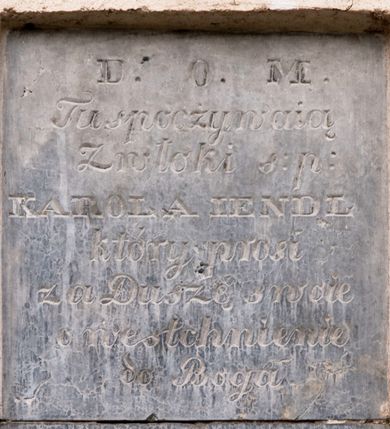 D. O. M.
Tu spoczywaią
Zwłoki s: p:
KAROLA IENDL
który prosi
za Duszę swoie
o westchnienie
do Boga